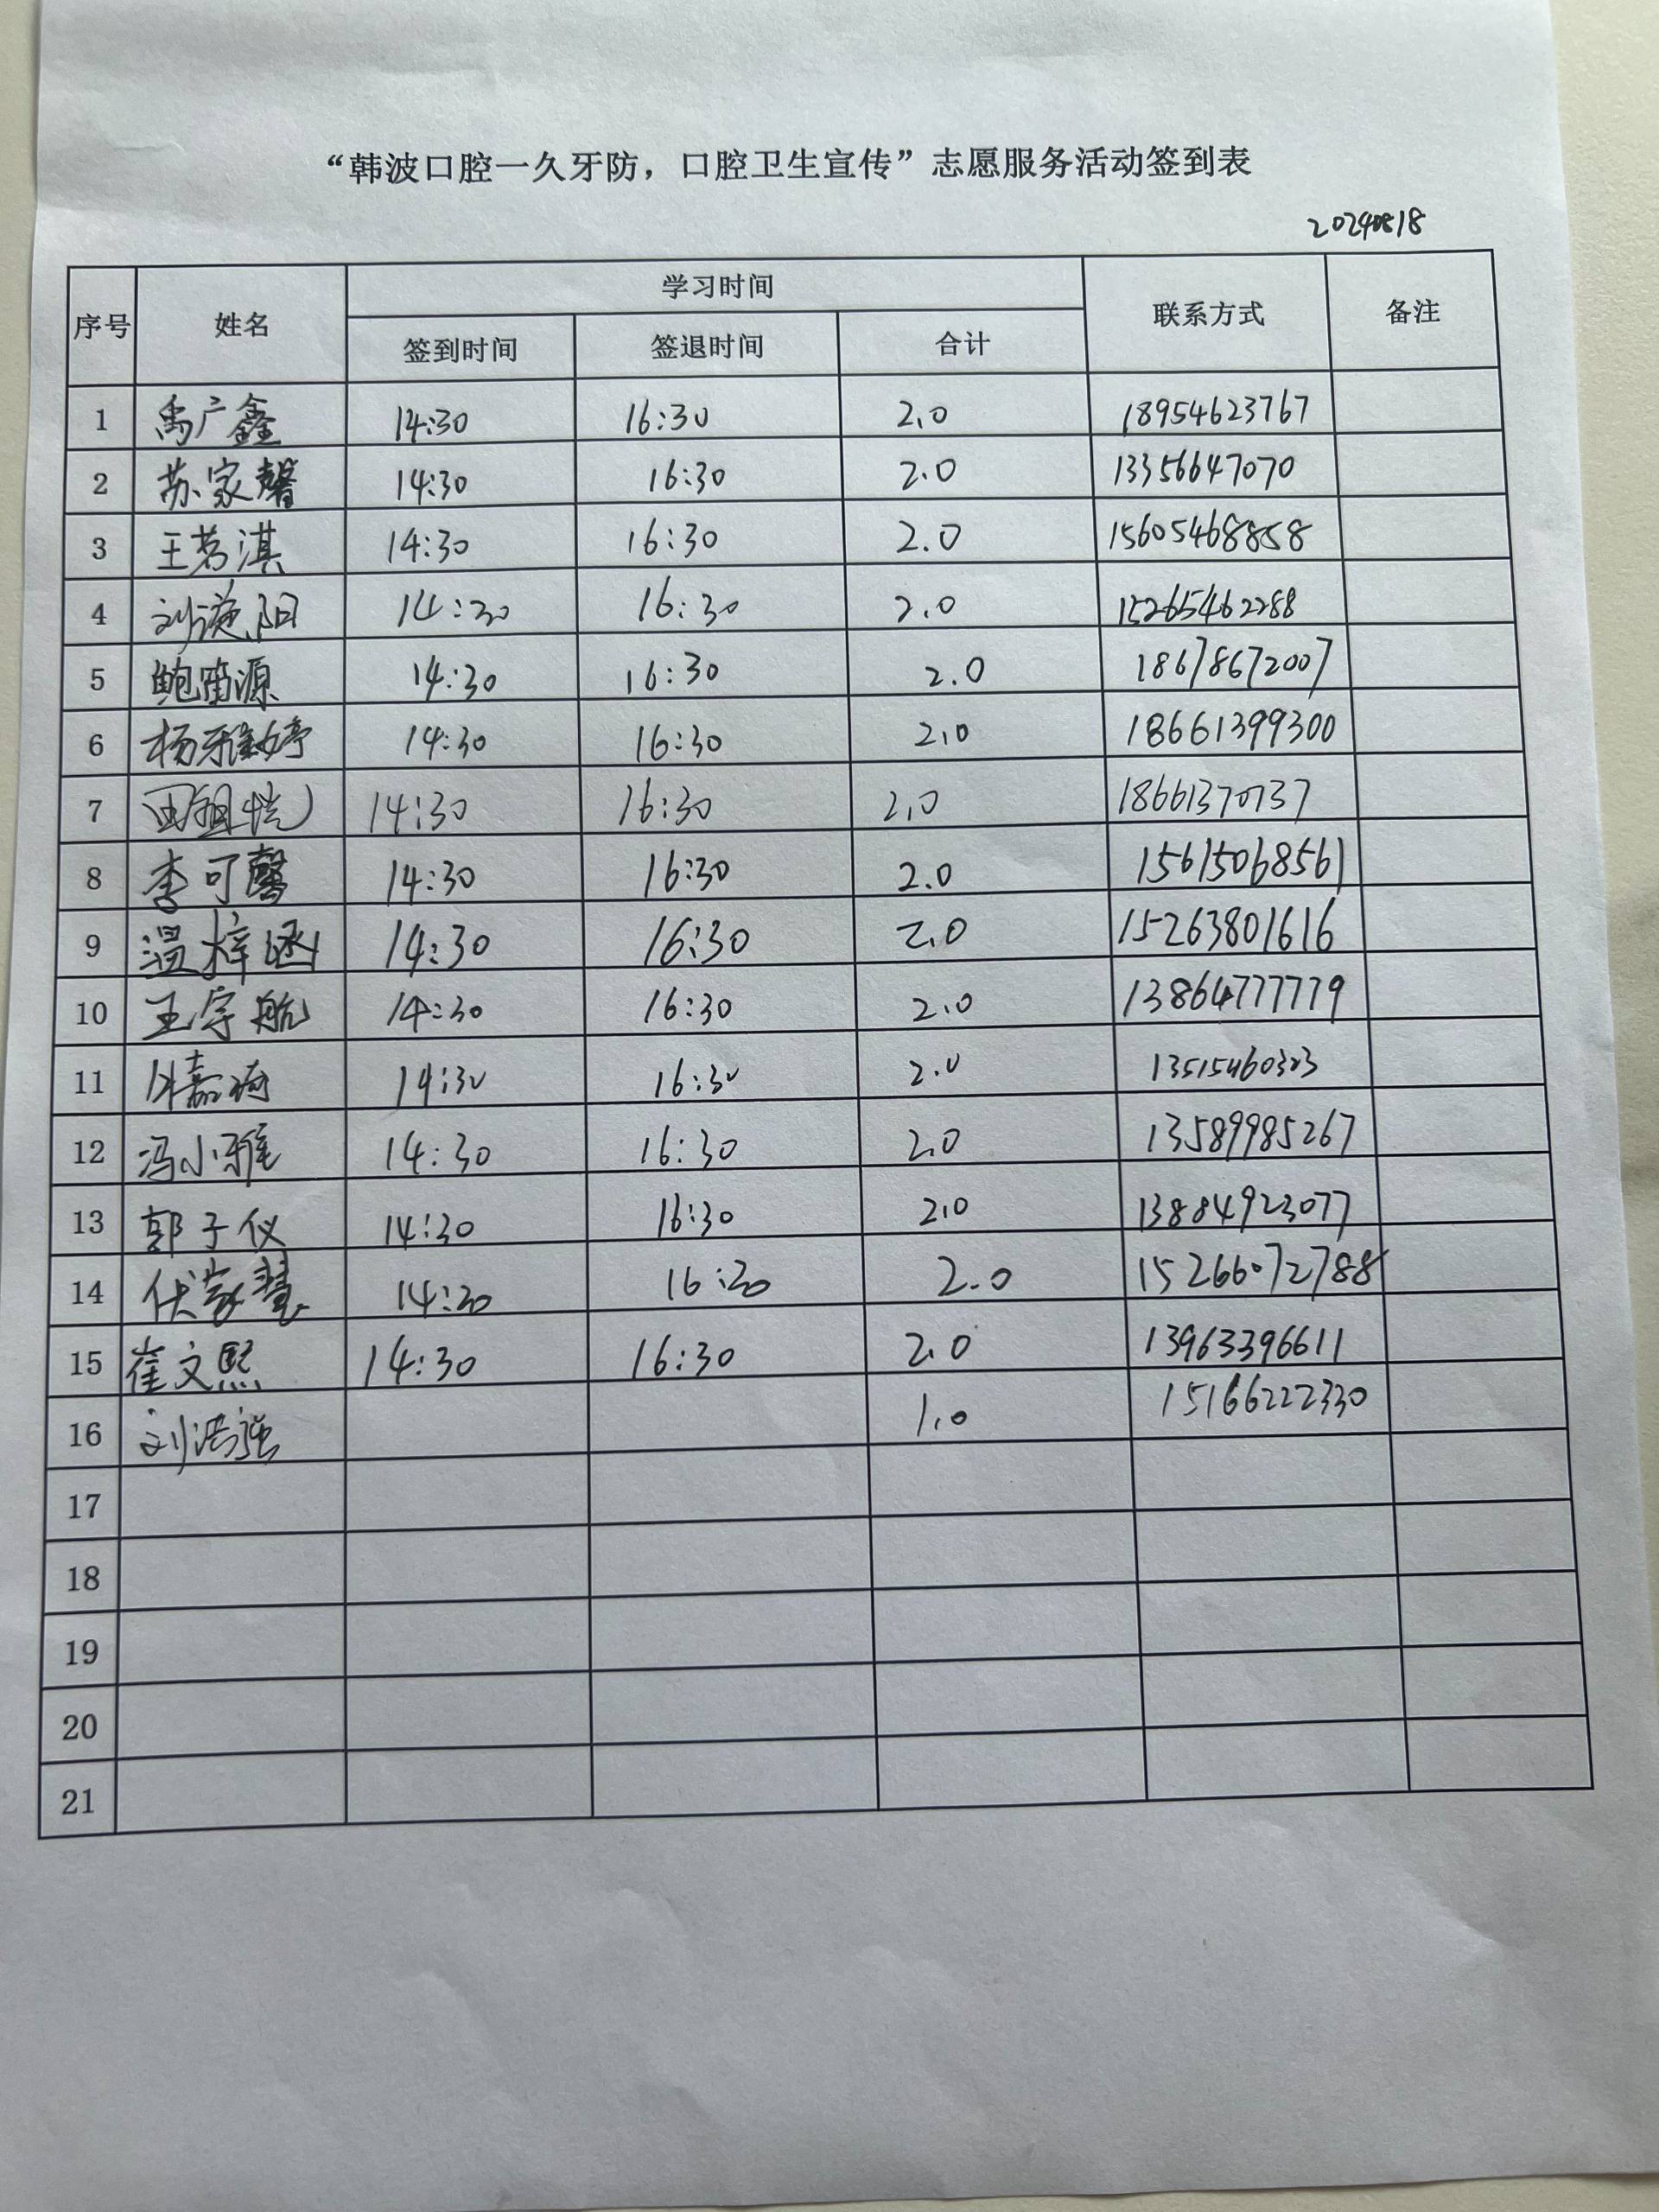 “韩波口腔一久牙防，口腔卫生宣传”志愿服务活动签到表
20240818
序号 姓名 学习时间 联系方式 备注
签到时间 签退时间 合计
1 禹广鑫 14:30 16:30 2.0 18954623767
2 苏家馨 14:30 16:30 2.0 13356647070
3 王茗淇 14:30 16:30 2.0 15605468858
4 14:30 16:30 2.0 15265462288
5 鲍笛源 14:30 16:30 2.0 18678672007
6 杨雅婷 14:30 16:30 2.0 18661399300
7 14:30 16:30 2.0 18661370737
8 李可馨 14:30 16:30 2.0 15615068561
9 温梓函 14:30 16:30 2.0 15263801616
10 王宇航 14:30 16:30 2.0 13864777779
11 14:30 16:30 2.0 13515460323
12 冯小雅 14:30 16:30 2.0 13589985267
13 郭子仪 14:30 16:30 2.0 13884923077
14 伏蒙慧 14:30 16:30 2.0 15266072788
15 崔文熙 14:30 16:30 2.0 13963396611
16 刘浩强 1.0 15166222330
17
18
19
20
21